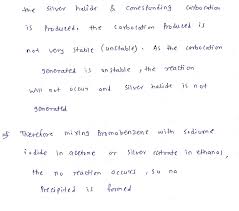 the silver halide & corresponding carbocation
is produced. the carbocation produced is
not very stable (unstable). As the carbocation
generated is unstable, the reaction
will not occur and silver halide is not
generated
Therefore mixing Bromobenzene with sodium
iodide in acetone or silver nitrate in ethanol,
the no reaction occurs, so no
Precipited is formed